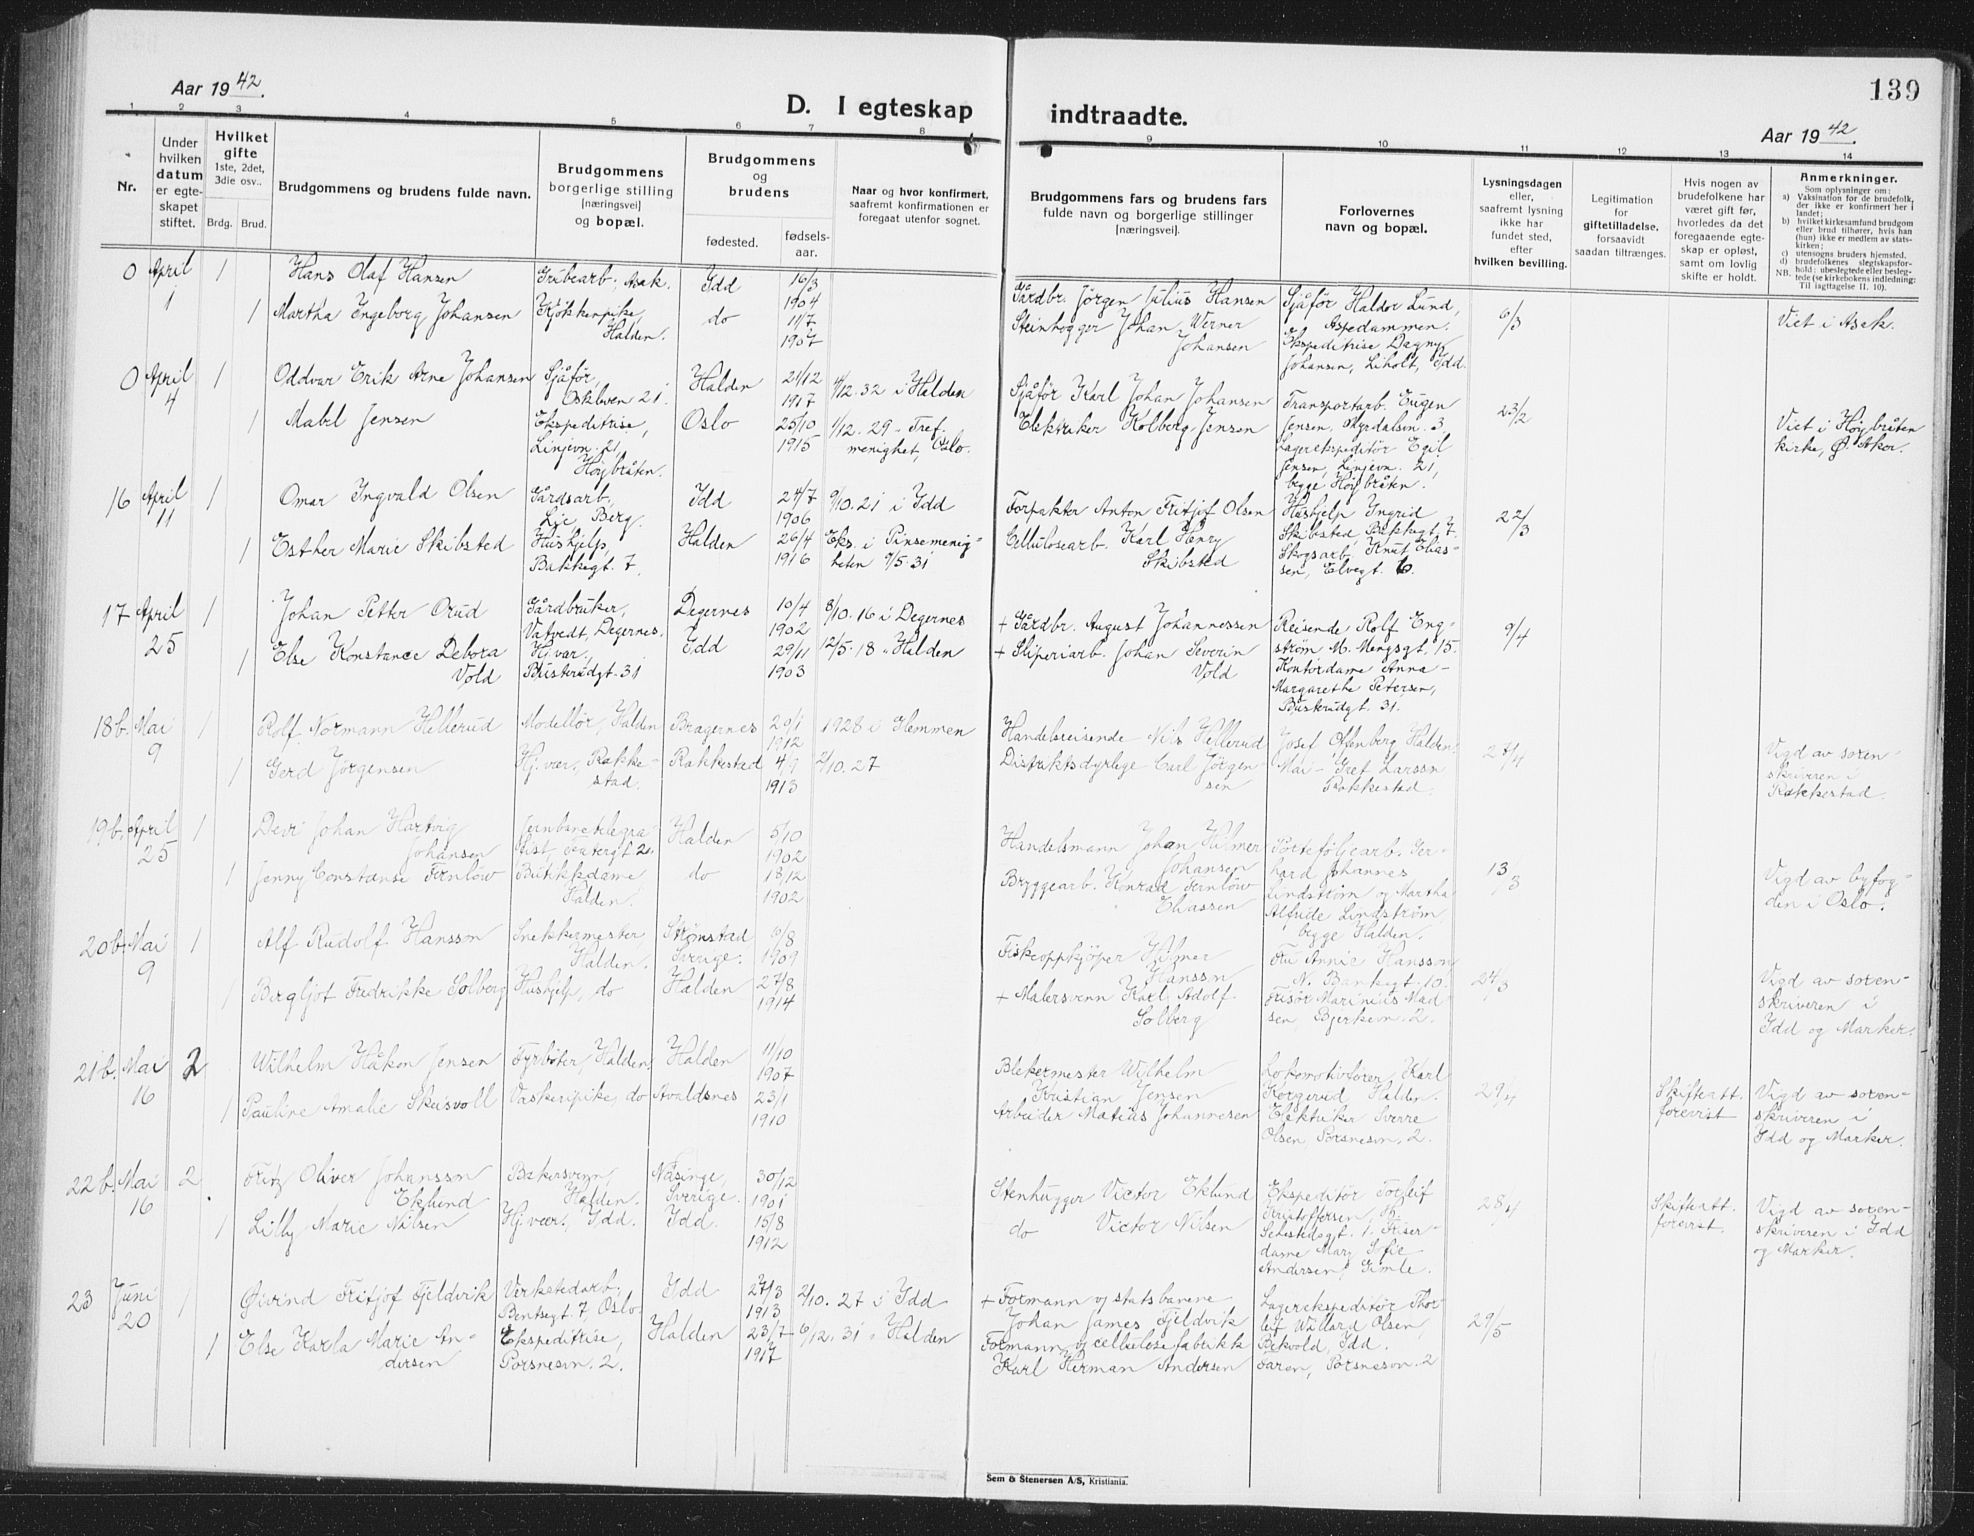 Aar 1942.
D. I egteskap
1 2 3 4 5 6 7 8
Nr.
Under hvilken datum er egte-skapet stiftet.
Hvilket gifte
1ste, 2det, 3die osv..
Brdg. Brud.
Brudgommens og brudens fulde navn.
Brudgommens borgerlige stilling [næringsvei] og bopæl.
Brudgommens og brudens
fødested. fødsels-aar.
Naar og hvor konfirmert, saafremt konfirmationen er foregaat utenfor sognet.
0 April 1 1 Hans Olaf Hansen Grubearb. Asak. Idd 16/3 1904
1 Martha Engeborg Johansen Kjøkkenpike, Halden. do 11/7 1907
0 April 4 1 Oddvar Erik Arne Johansen Sjåfør, Oskleven 21. Halden 24/12 1917 4/12.32 i Halden
1 Mabel Jensen Ekspeditrise, Linjevn. 21, Høybråten. Oslo 25/10 1915 1/12.29 " Tref. menighet, Oslo.
16 April 11 1 Omar Ingvald Olsen Gårdsarb. Lie Berg. Idd 24/7 1906 9/10.21 i Idd
1 Esther Marie Skibsted Hushjelp, Bakkegt. 7. Halden 26/4 1916 Eks. i Pinsemenig-heten 7/5.31
17 April 25 1 Johan Petter Orud Gårdbruker, Vatvedt, Degernes. Degernes 10/4 1902 8/10.16 i Degernes
1 Else Konstance Debora Vold Hj.vær., Busterudgt. 31 Idd 29/11 1903 12/5.18 " Halden
18b. Mai 9 1 Rolf Normann Hellerud Modellør, Halden Bragernes 29/1 1912 1928 i Glemmen
1 Gerd Jørgensen Hj.vær, Rakke-stad. Rakkestad 4/9 1913 2/10.27
19b. April 25 1 Devi Johan Hartvig Johansen Jernbanetelegra-fist, Halden 5/10 1902
1 Jenny Constanse Fernlöw Butikkdame Halden. do 18/12 1902
20b. Mai 9 1 Alf Rudolf Hansson Snekkermester Halden. Strømstad Sverige. 6/8 1909
1 Bergljot Fredrikke Solberg Hushjelp, do Halden 27/8 1914
21b. Mai 16 2 Wilhelm Håkon Jensen Fyrbøter, Halden. Halden 11/10 1907
1 Pauline Amalie Skeisvoll Vaskeripike, do Avaldsnes 23/1 1910
22b. Mai 16 2 Fritz Oliver Johansson Eklund Bakersvenn, Halden. Näsinge, Sverige. 30/12 1901
1 Lilly Marie Nilsen Hj.vær., Idd. Idd. 15/8 1912
23 Juni 20 1 Øivind Fritjof Fjeldvik Verkstedarb. Bentsegt. 7, Oslo. Idd 27/3 1913 2/10.27 i Idd
1 Else Karla Marie An-dersen Ekspeditrise, Porsnesvn. 2. Halden 23/7 1917 6/12.31 " Halden
139
indtraadte.
Aar 1942.
9 10 11 12 13 14
Brudgommens fars og brudens fars fulde navn og borgerlige stillinger [næringsvei].
Forlovernes navn og bopæl.
Lysningsdagen eller, saafremt lysning ikke har fundet sted, efter hvilken bevilling.
Legitimation for giftetilladelse, forsaavidt saadan tiltrænges.
Hvis nogen av brudefolkene har været gift før, hvorledes da det foregaaende egte-skap er opløst, samt om lovlig skifte er holdt.
Anmerkninger.
Som oplysninger om:
a) Vaksination for de brudefolk, der ikke er konfirmert her i landet;
b) hvilket kirkesamfund brudgom eller brud tilhører, hvis han (hun) ikke er medlem av stats-kirken;
c) utensogns bruders hjemsted.
d) brudefolkenes slegtskapsfor-hold: ubeslegtede eller beslegtede
NB. (se kirkebokens indledning: Til iagttagelse II, 10).
Gårdbr. Jörgen Julius Hansen Sjåför Haldor Lund, Aspedammen. 6/3 Viet i Asak.
Steinhogger Johan Werner Johansen Ekspeditrise Dagny Johansen, Liholt, Idd.
Sjåför Karl Johan Johansen Transportarb. Eugen Jensen, Myrdalsvn. 3, 23/2 Viet i Høybråten kirke, Ø. Aker.
Elektriker Kolberg Jensen Lagerekspeditör Egil Jensen, Linjevn. 21, begge Høybråten.
Forpakter Anton Fritjof Olsen Hushjelp Ingrid Skibsted, Bakkegt. 7. 22/3
Cellulosearb. Karl Henry Skibsted Skogsarb. Knut Elias-sen, Elvegt. 6.
+ Gårdbr. August Johannessen Reisende Rolf Eng-strøm M. Mengsgt. 15. 9/4
+ Sliperiarb. Johan Severin Vold Kontordame Anna-Margarethe Petersen, Busterudgt. 31.
Handelsreisende Nils Hellerud Josef Offenberg Halden. 27/4 Vigd av soren-skriveren i Rakkestad.
Distriktsdyrlege Carl Jörgen-sen Mai-Gret Larsson Rakkestad.
Handelsmann Johan Hilmer Johansen Porteføljearb. Ger-hard Johannes 13/3 Vigd av byfog-den i Oslo.
Bryggearb. Konrad Fernlöw Eliassen Lindstrøm og Martha Alfride Lindstrøm begge Halden.
Fiskeoppkjøper Hilmer Hansson Fru Annie Hansson, N. Bankegt. 10. 24/3 Vigd av soren-skriveren i Idd og Marker.
+ Malersvenn Karl Adolf Solberg Frisør Marinius Mad-sen, Bjerkevn. 2.
Blekermester Wilhelm Kristian Jensen Lokomotivfører Karl Korgerud Halden. 29/4 Skifteatt. forevist Vigd av soren-skriveren i Idd og Marker.
Arbeider Mateus Johannesen Elektriker Sverre Olsen, Porsnesvn. 2.
Stenhugger Victor Eklund Ekspeditør Torleif Kristoffersen, 28/4 Skifteatt. forevist. Vigd av soren-skriveren i Idd og Marker.
do Victor Nilsen Sehestedsgt. 1. Friser-dame Mary Sofie Andersen, Gimle.
+ Formann og statsbanene Johan James Fjeldvik Lagerekspeditør Thor-leif Willard Olsen, Bekvold, Idd. 29/5
Formann og cellulosefabrikk Karl Herman Andersen Faren, Porsnesvn. 2
Sem & Stenersen A/S, Kristiania.